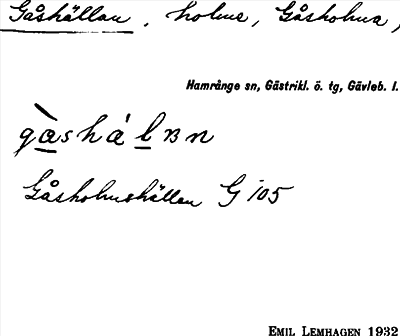 Gåshällan, holme, Gåsholma,
Hamrånge sn, Gästrikl. ö. tg, Gävleb. l.
gàshálʙn
Gåsholmshällen G 105
EMIL LEMHAGEN 1932